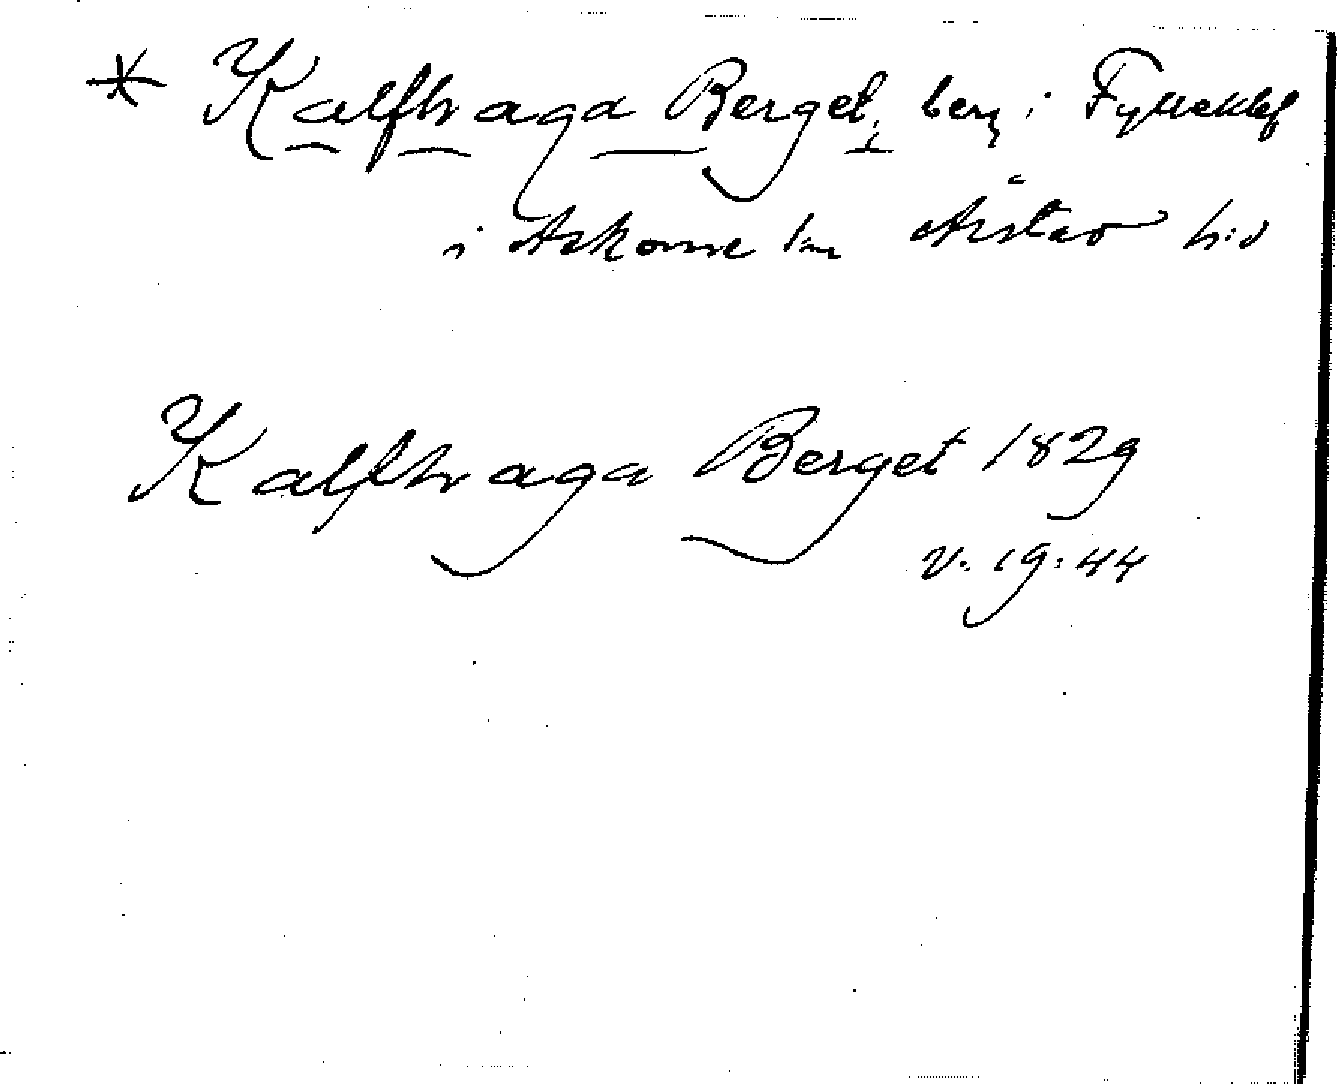 * Kalfhaga Berget, berg i Fylleklef
i Askome sn Årstad hd
Kalfhaga Berget 1829
v. 19:44